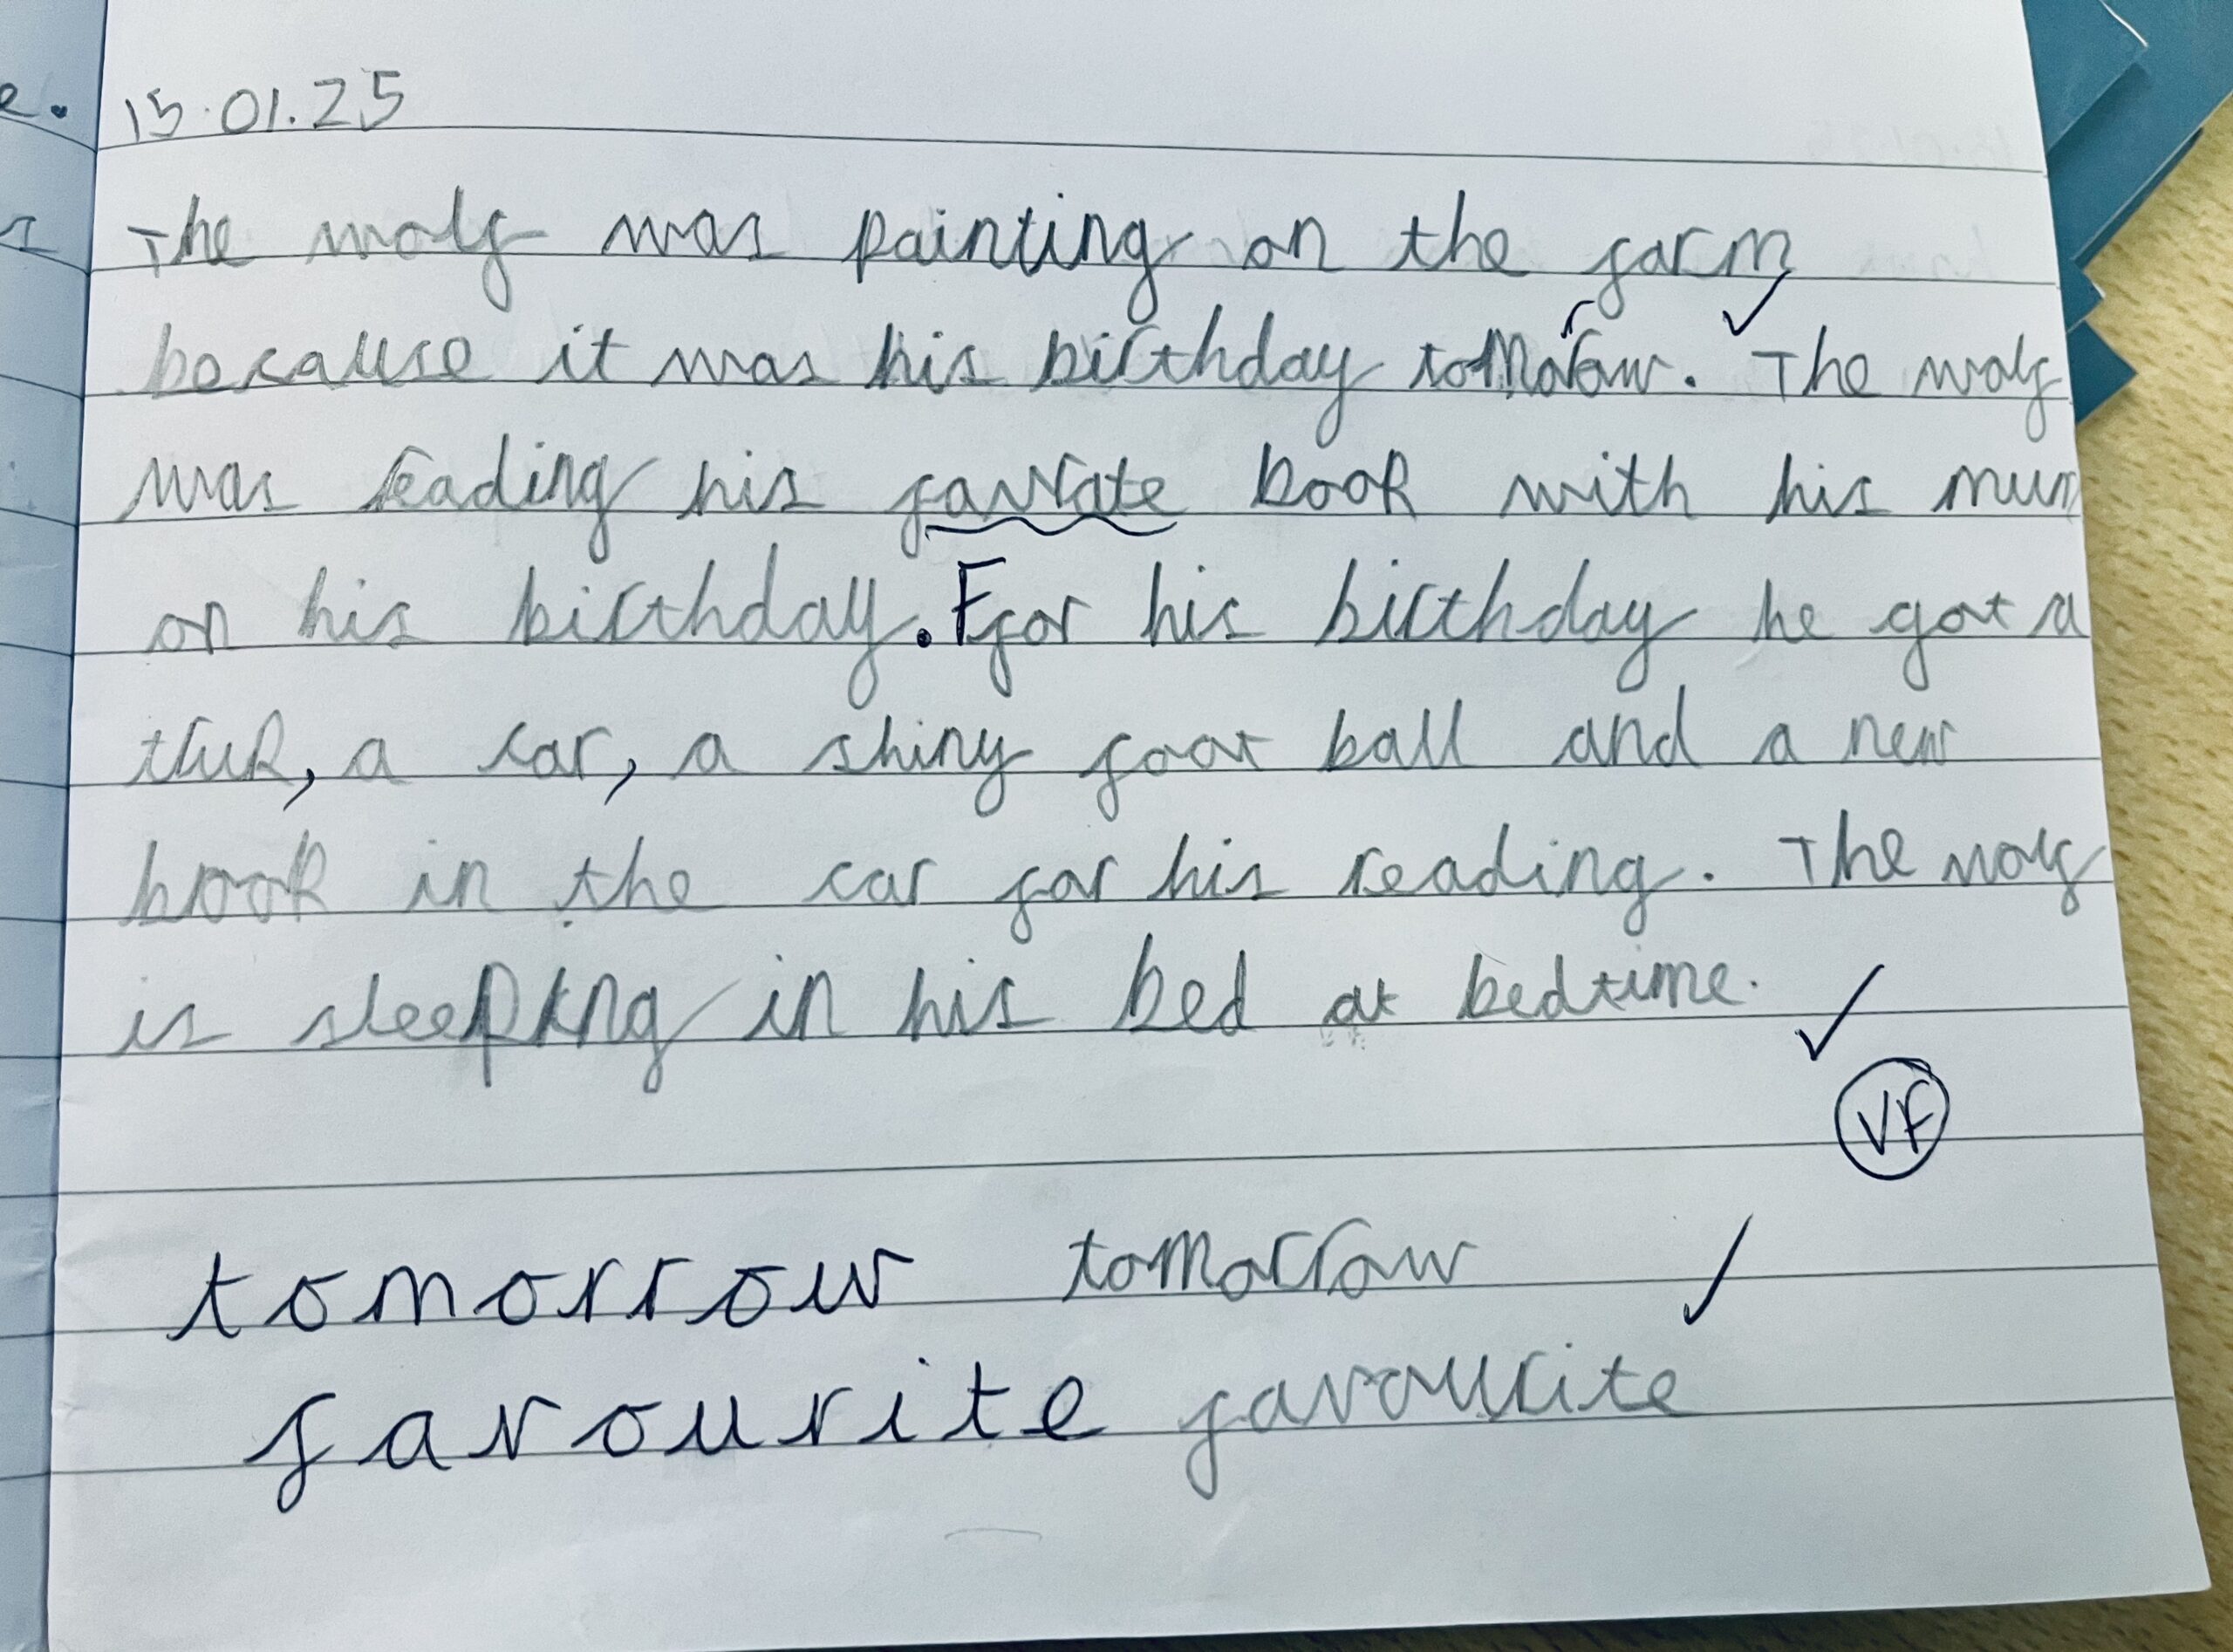 e.
s
15.01.25
The wolf was painting on the farm
because it was his birthday tomorow. The wolf
was reading his favrate book with his mum
on his birthday. Ffor his birthday he got a
truk, a car, a shiny foot ball and a new
book in the car for his reading. The wolf
is sleeping in his bed at bedtime.
VF
tomorrow tomorrow
favourite favourite